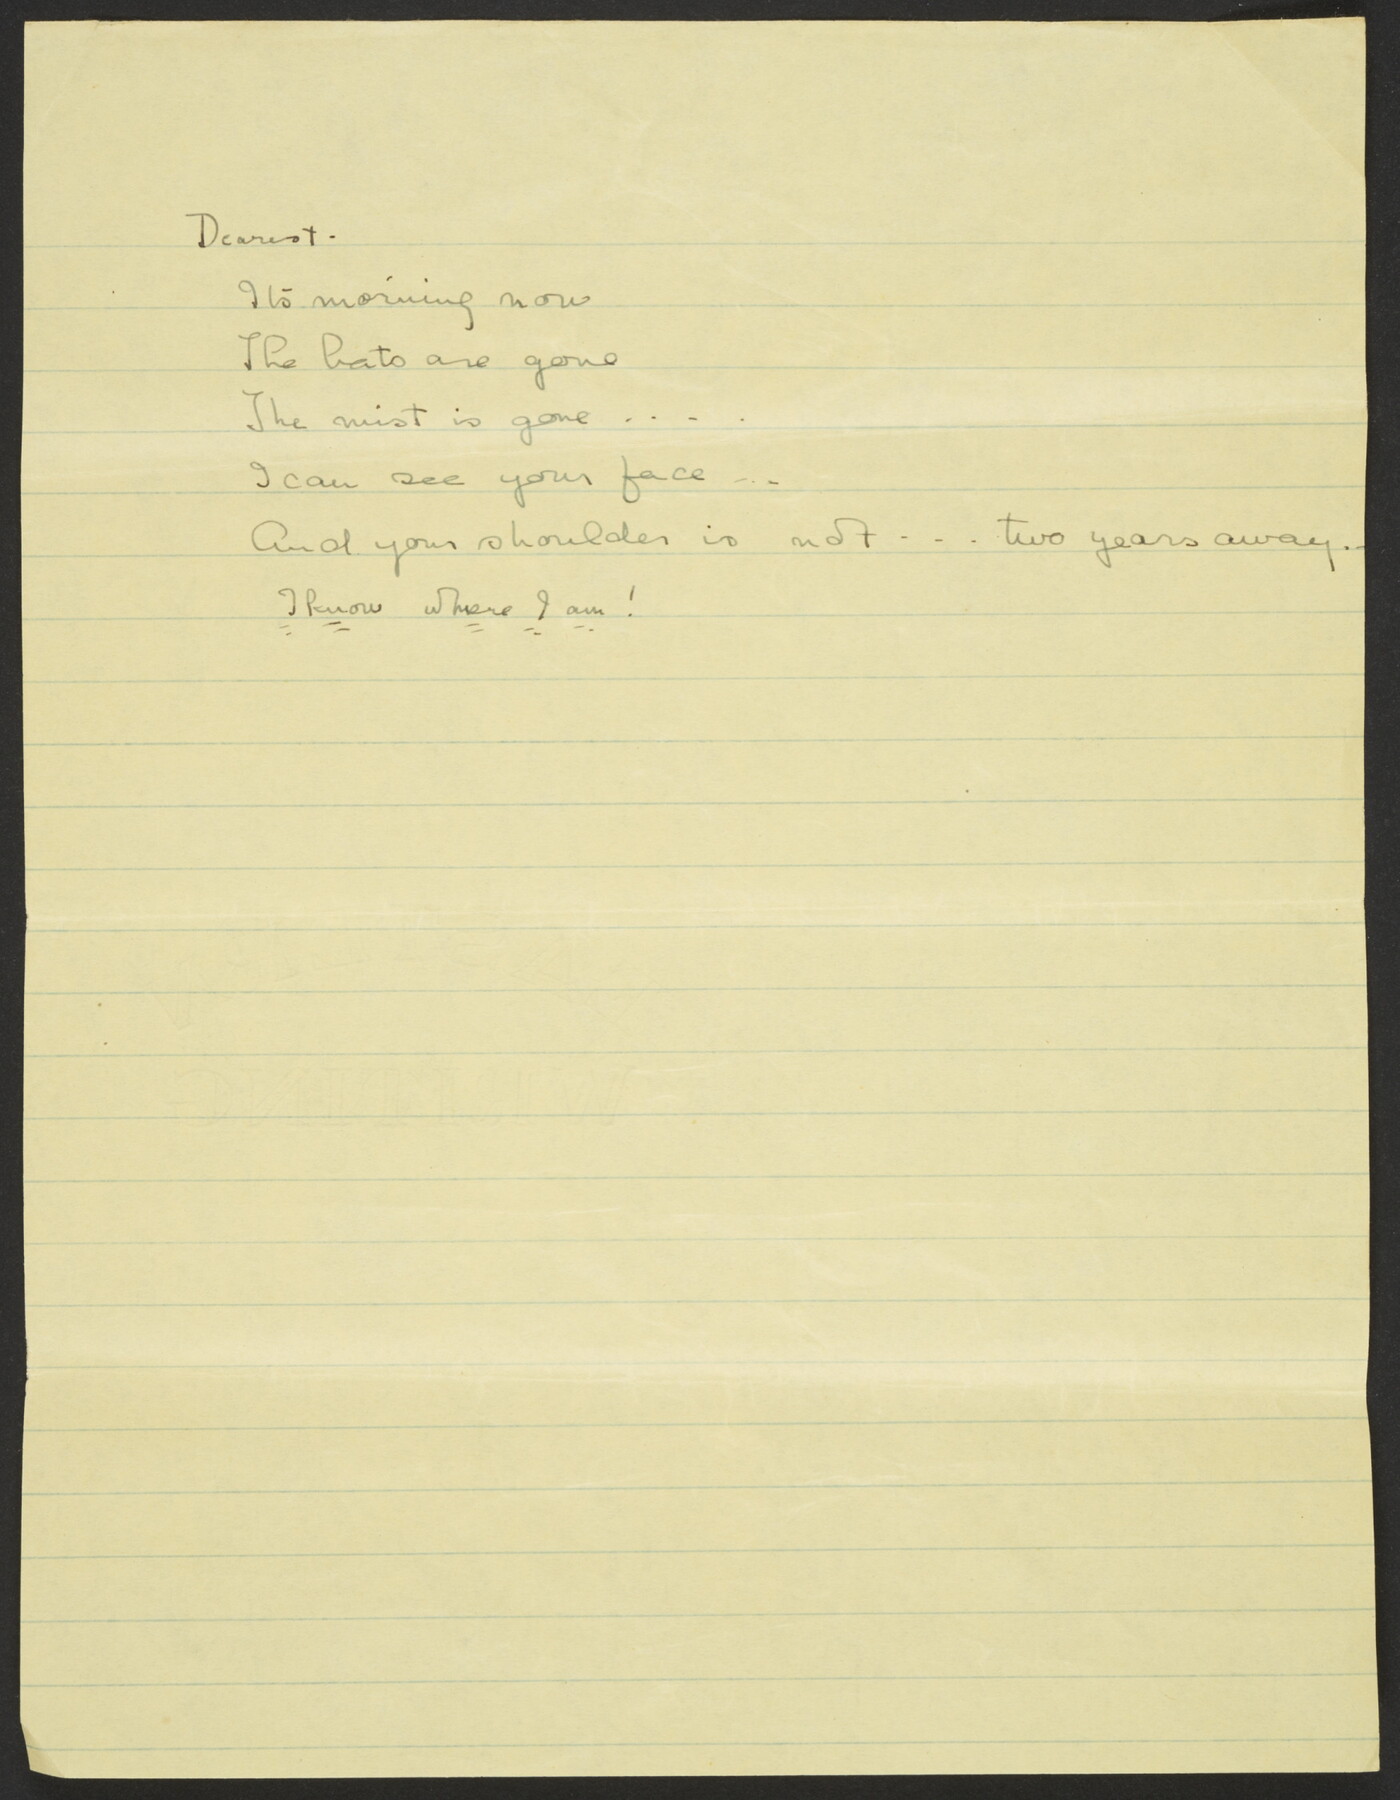 Dearest -
Its morning now
The bats are gone
The mist is gone . . - .
I can see your face - . -
And your shoulder is not - - . two years away. -
I know where I am !